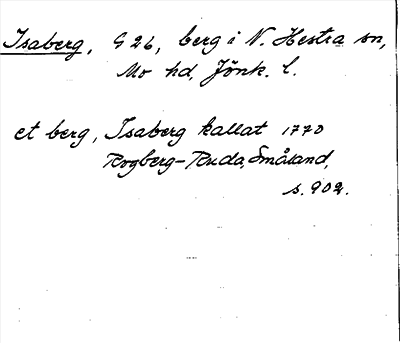 Isaberg, G 26, berg i N. Hestra sn,
Mo hd, Jönk. l.
et berg, Isaberg kallat 1770
Rogberg-Ruda, Småland,
s. 902.